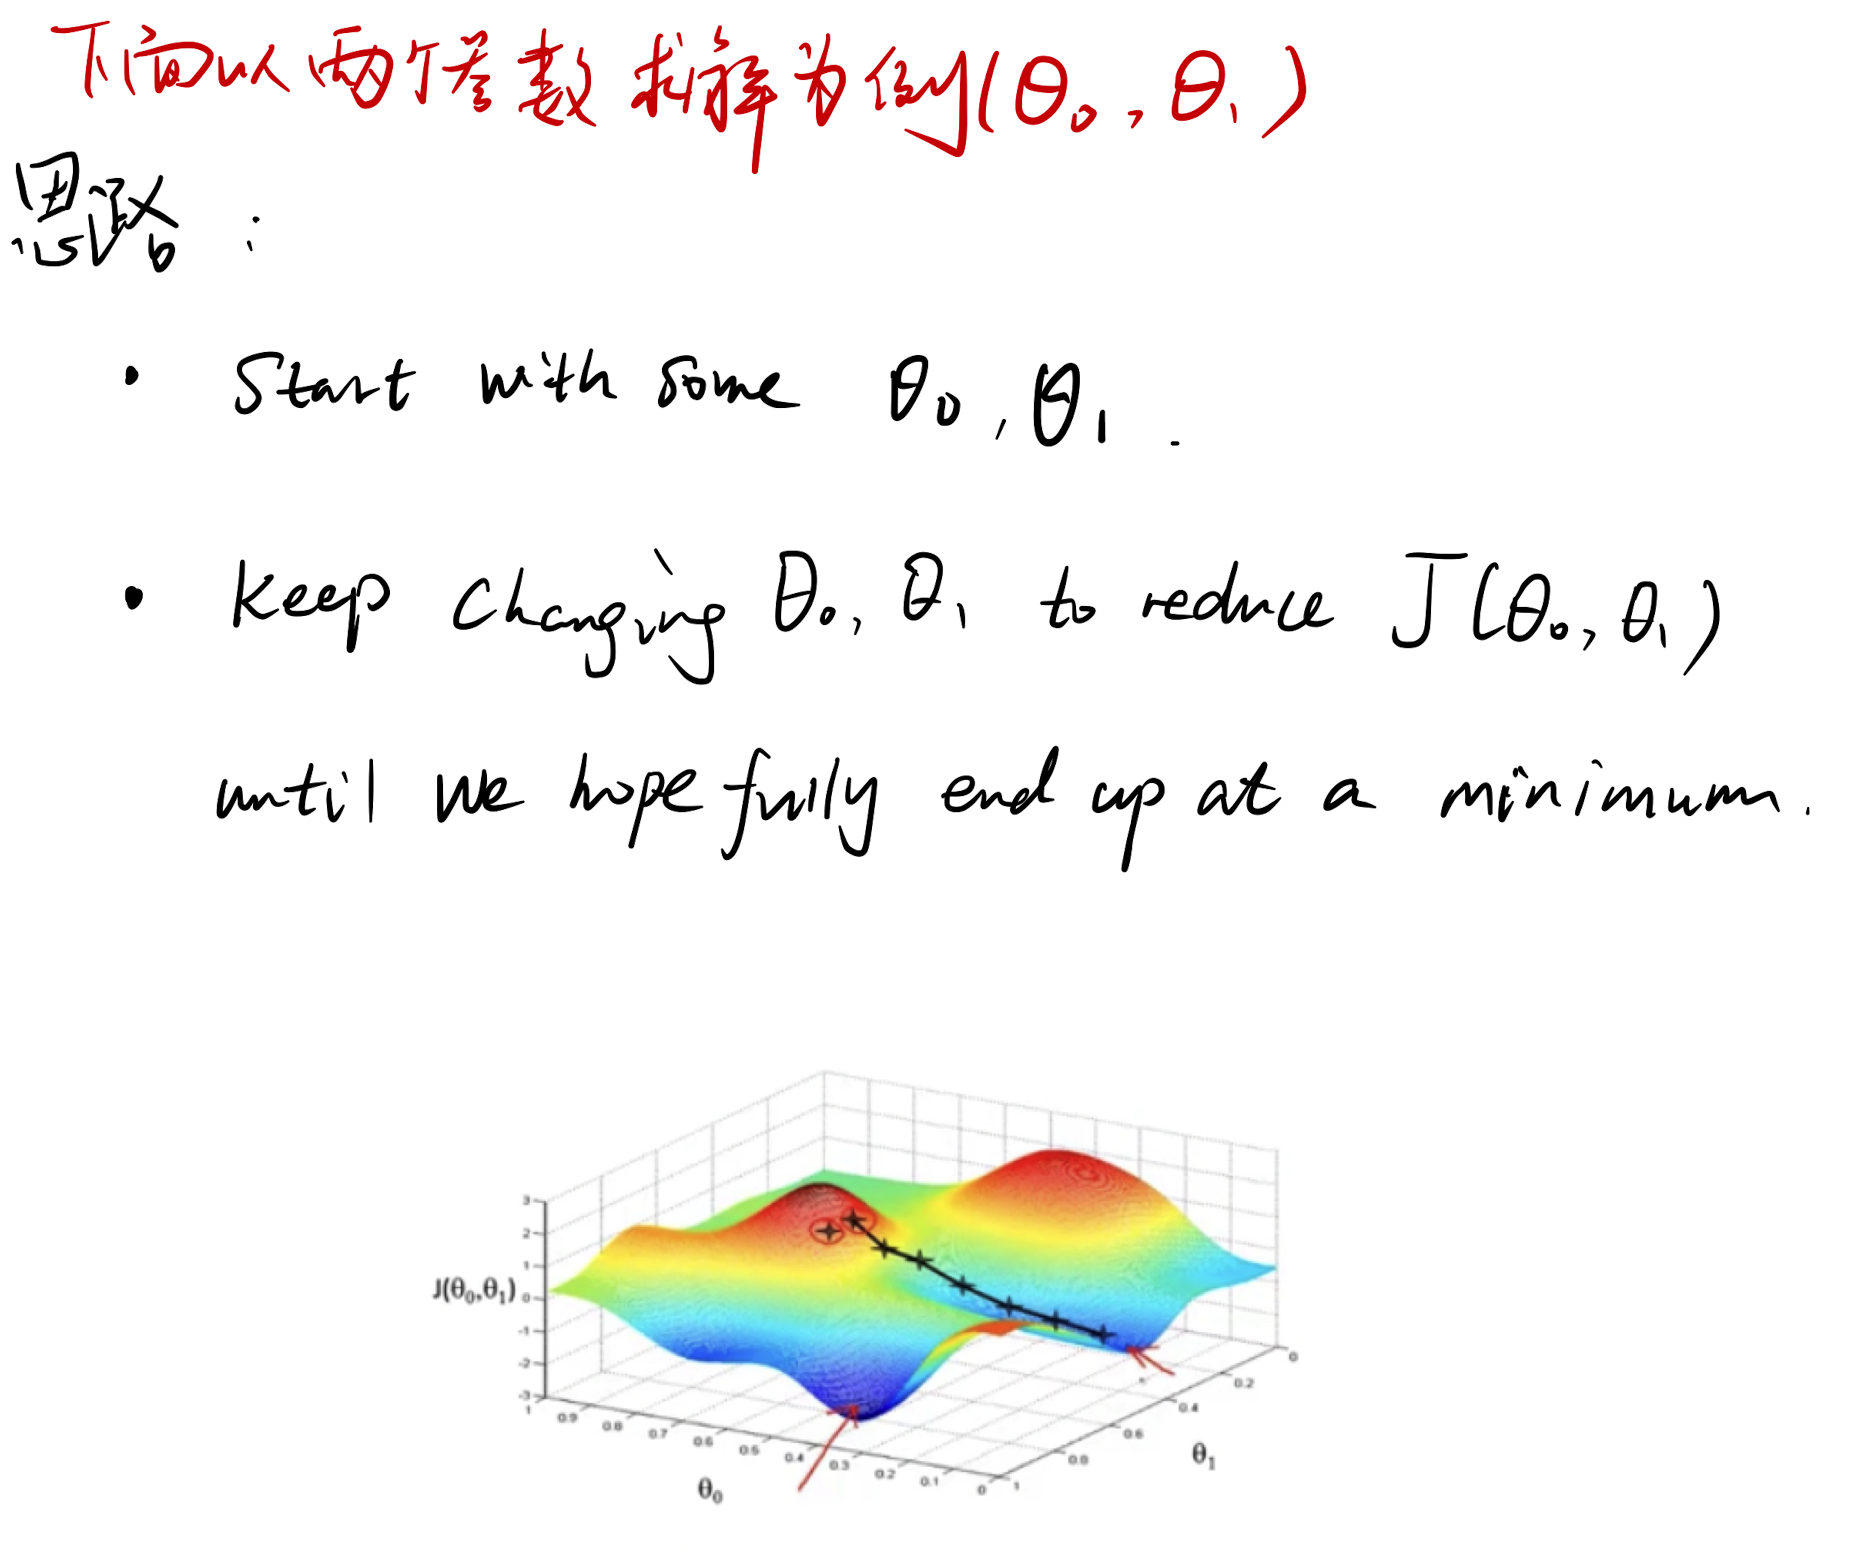 下面以两个参数求解为例(θ₀, θ₁)
思路:
• Start with some θ₀, θ₁.
• Keep changing θ₀, θ₁ to reduce J(θ₀, θ₁)
until we hopefully end up at a minimum.
J(θ₀,θ₁)
3
2
1
0
-1
-2
-3
1 0.9 0.8 0.7 0.6 0.5 0.4 0.3 0.2 0.1 0
θ₀
1 0.8 0.6 0.4 0.2 0
θ₁